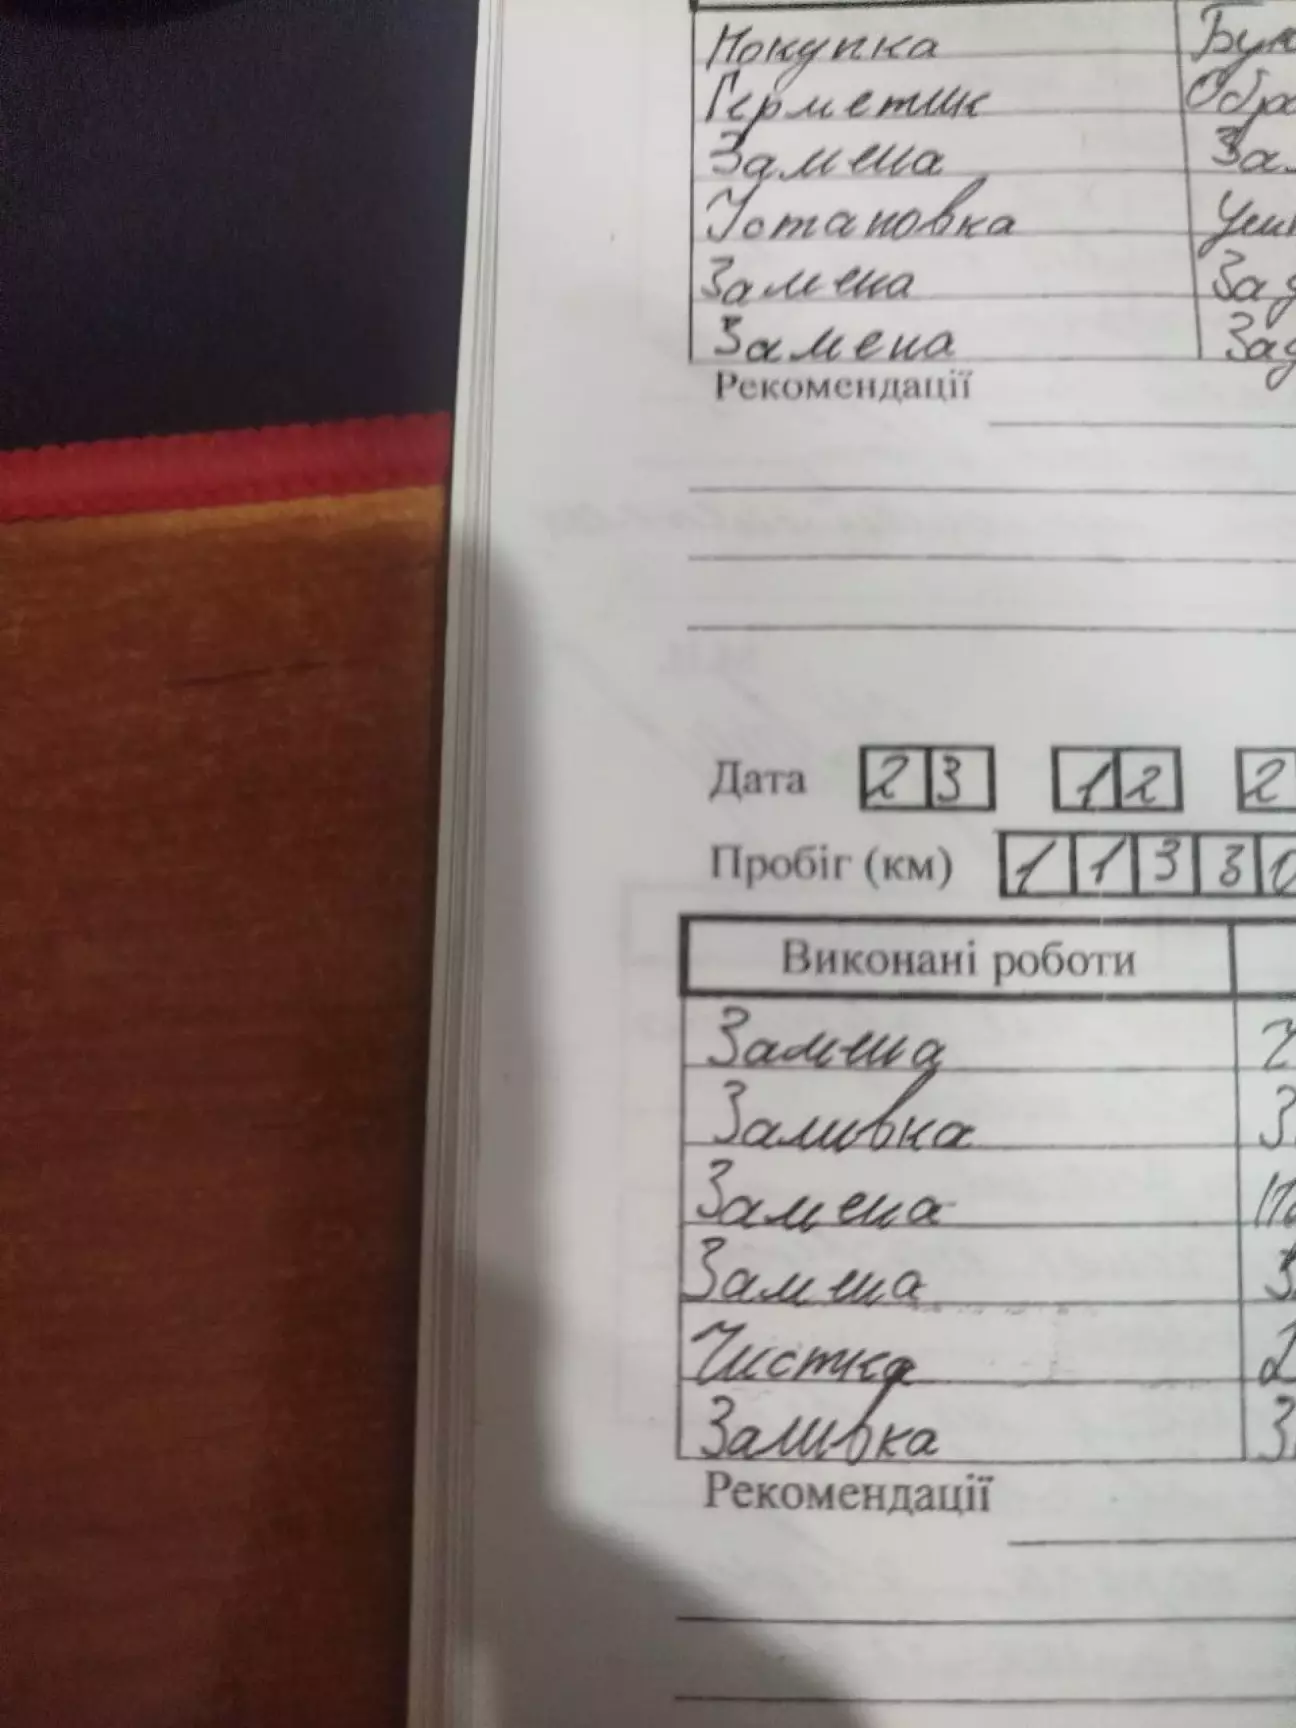 Покупка
Герметик
Замена
Установка
Замена
Замена
Рекомендації
Дата 23 12 2
Пробіг (км) 11330
Виконані роботи
Замена
Заливка
Замена
Замена
Чистка
Заливка
Рекомендації